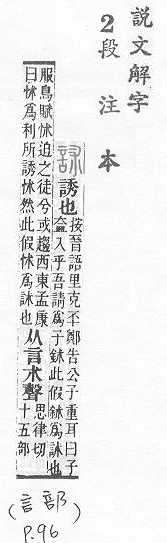 說文解字
2段注本
訹 誘也
按晉語里克丕鄭告公子重耳曰子
盍入乎吾請爲子鉥此假鉥爲訹也
服鳥賦怵迫之徒兮或趨西東孟康
曰怵爲利所誘怵然此假怵爲訹也
从言朮聲
思律切
十五部
(言部)
P.96